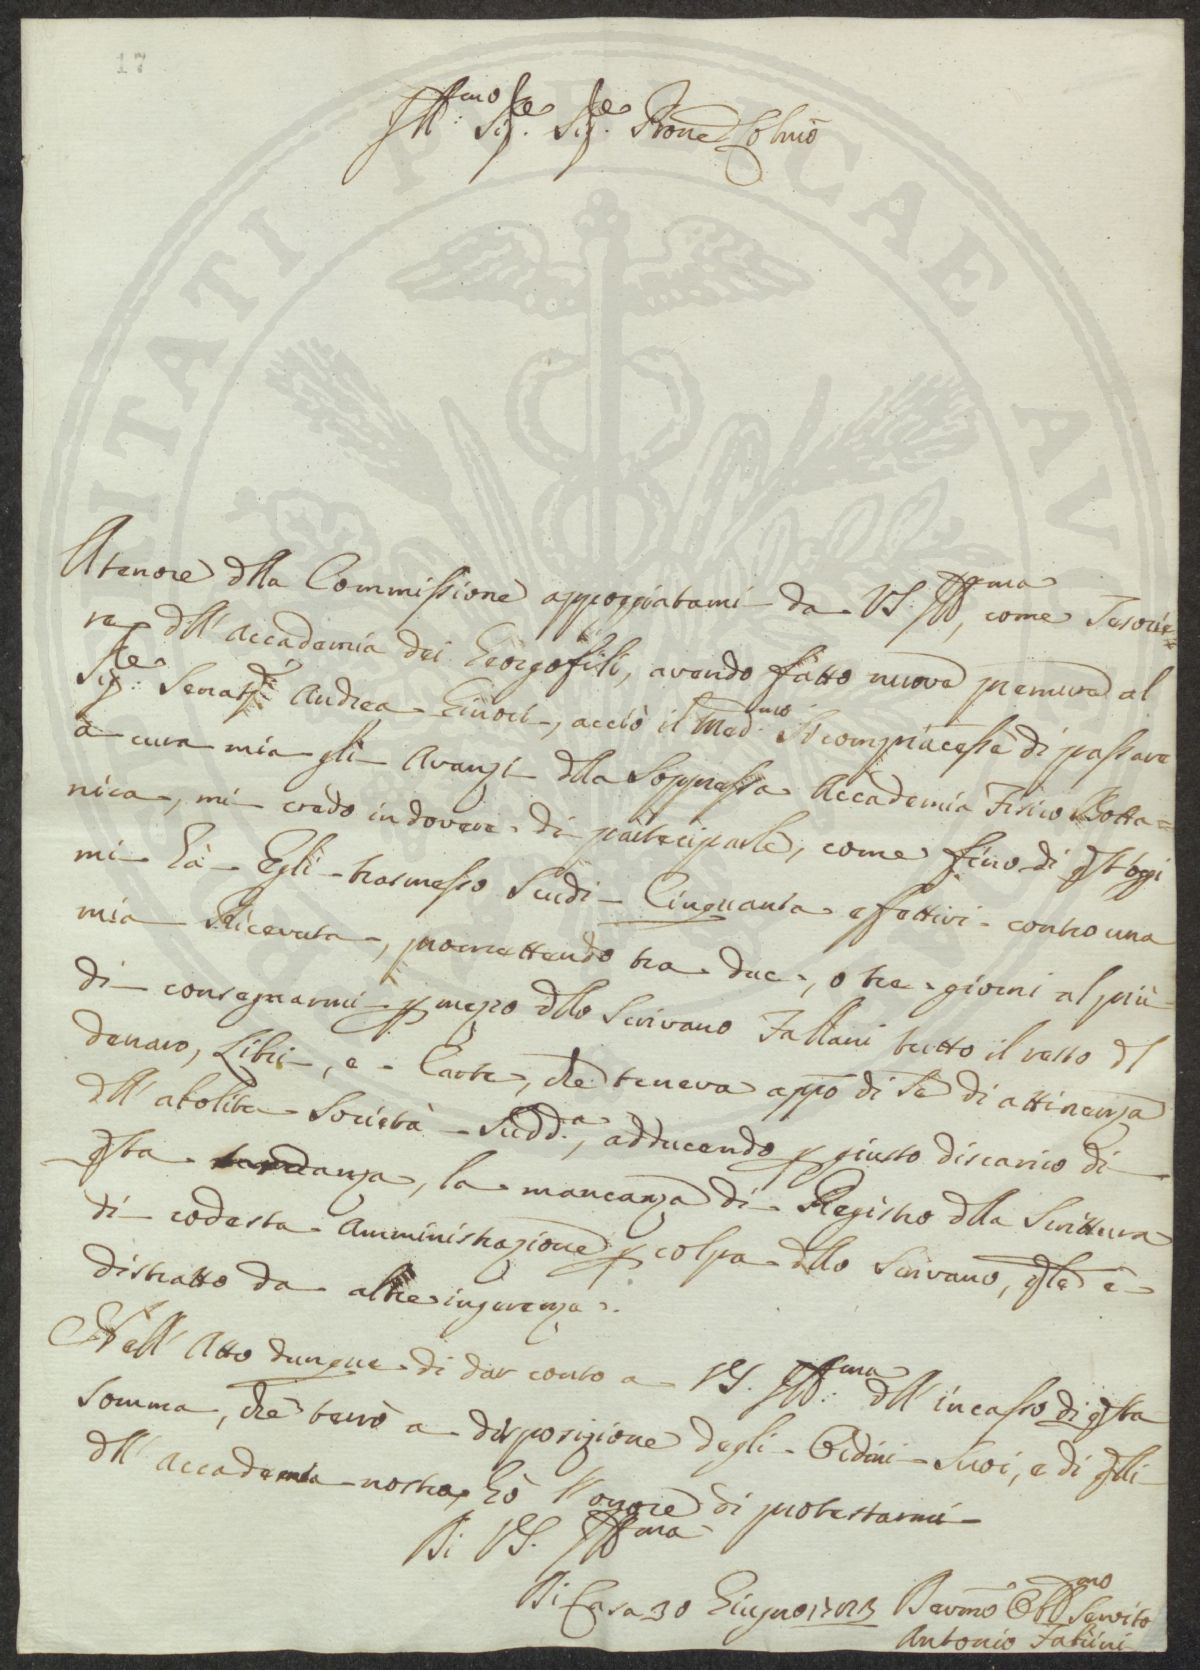 17
Ill:mo Sig:re Sig:re Prone Colmo
A tenore dlla Commissione appoggiatami da VS. Ill:ma, come Tesorie=
re dll'Accademia dei Georgofili, avendo fatto nuove premure al
Sig:re Senat:re Andrea Ginori, acciò il Med:mo si compiacesse di passare
a cura mia gli Avanzi dlla Soppressa Accademia Fisico Botta=
nica, mi credo in dovere di parteciparle, come fino di qst'oggi
mi hà Egli trasmesso Scudi Cinquanta effettivi contro una
mia Ricevuta, promettendo tra due, o tre giorni al più
di consegnarmi p mezzo dllo Scrivano Fallani tutto il resto dl
denaro, Libri, e Carte, che teneva appo di Se di attinenza
dll'abolita Società Sudd:a, adducendo p giusto discarico di
qsta tardanza, la mancanza di Registro dlla Scrittura
di codesta Amministrazione p colpa dllo Scrivano, qle è
distratto da altre ingerenze.
Nell'Atto dunque di dar conto a VS. Ill:ma dll'incasso di qsta
Somma, che terrò a disposizione degli Ordini Suoi, e di qlli
dll'Accademia nostra, hò l'onore di protestarmi
Di VS. Ill:ma
Di Casa 30 Giugno 1783 Devmo Obb:mo Servito
Antonio Fabrini